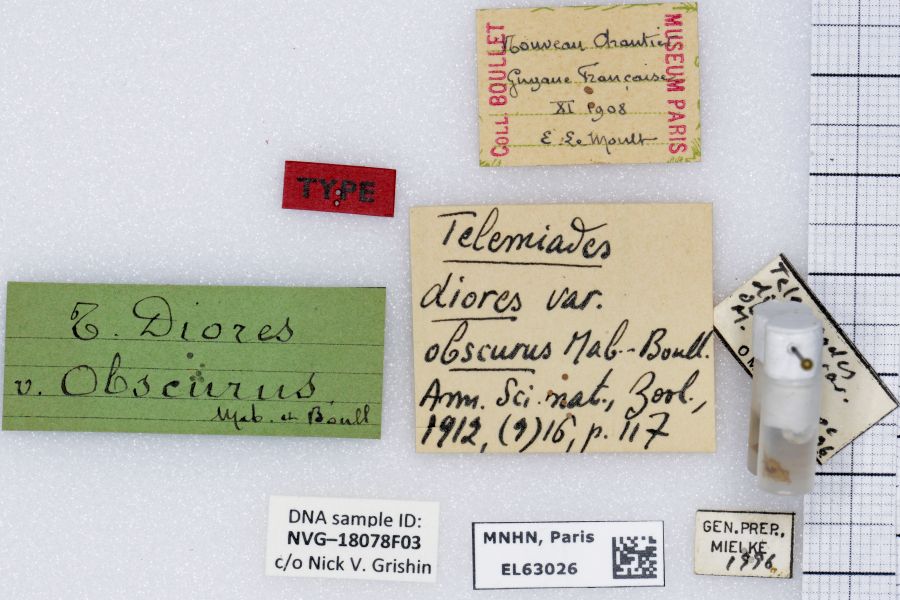 COLL BOULLET
Nouveau Chantier
Guyane Française
XI 1908
E. Le Moult
MUSEUM PARIS
TYPE
Telemiades
diores var.
obscurus Mab-Boull.
Ann. Sci. nat., Zool.,
1912, (9)16, p. 117
T. Diores
v. Obscurus,
Mab. et Boull
DNA sample ID:
NVG–18078F03
c/o Nick V. Grishin
MNHN, Paris
EL63026
GEN.PREP.,
MIELKE
1996